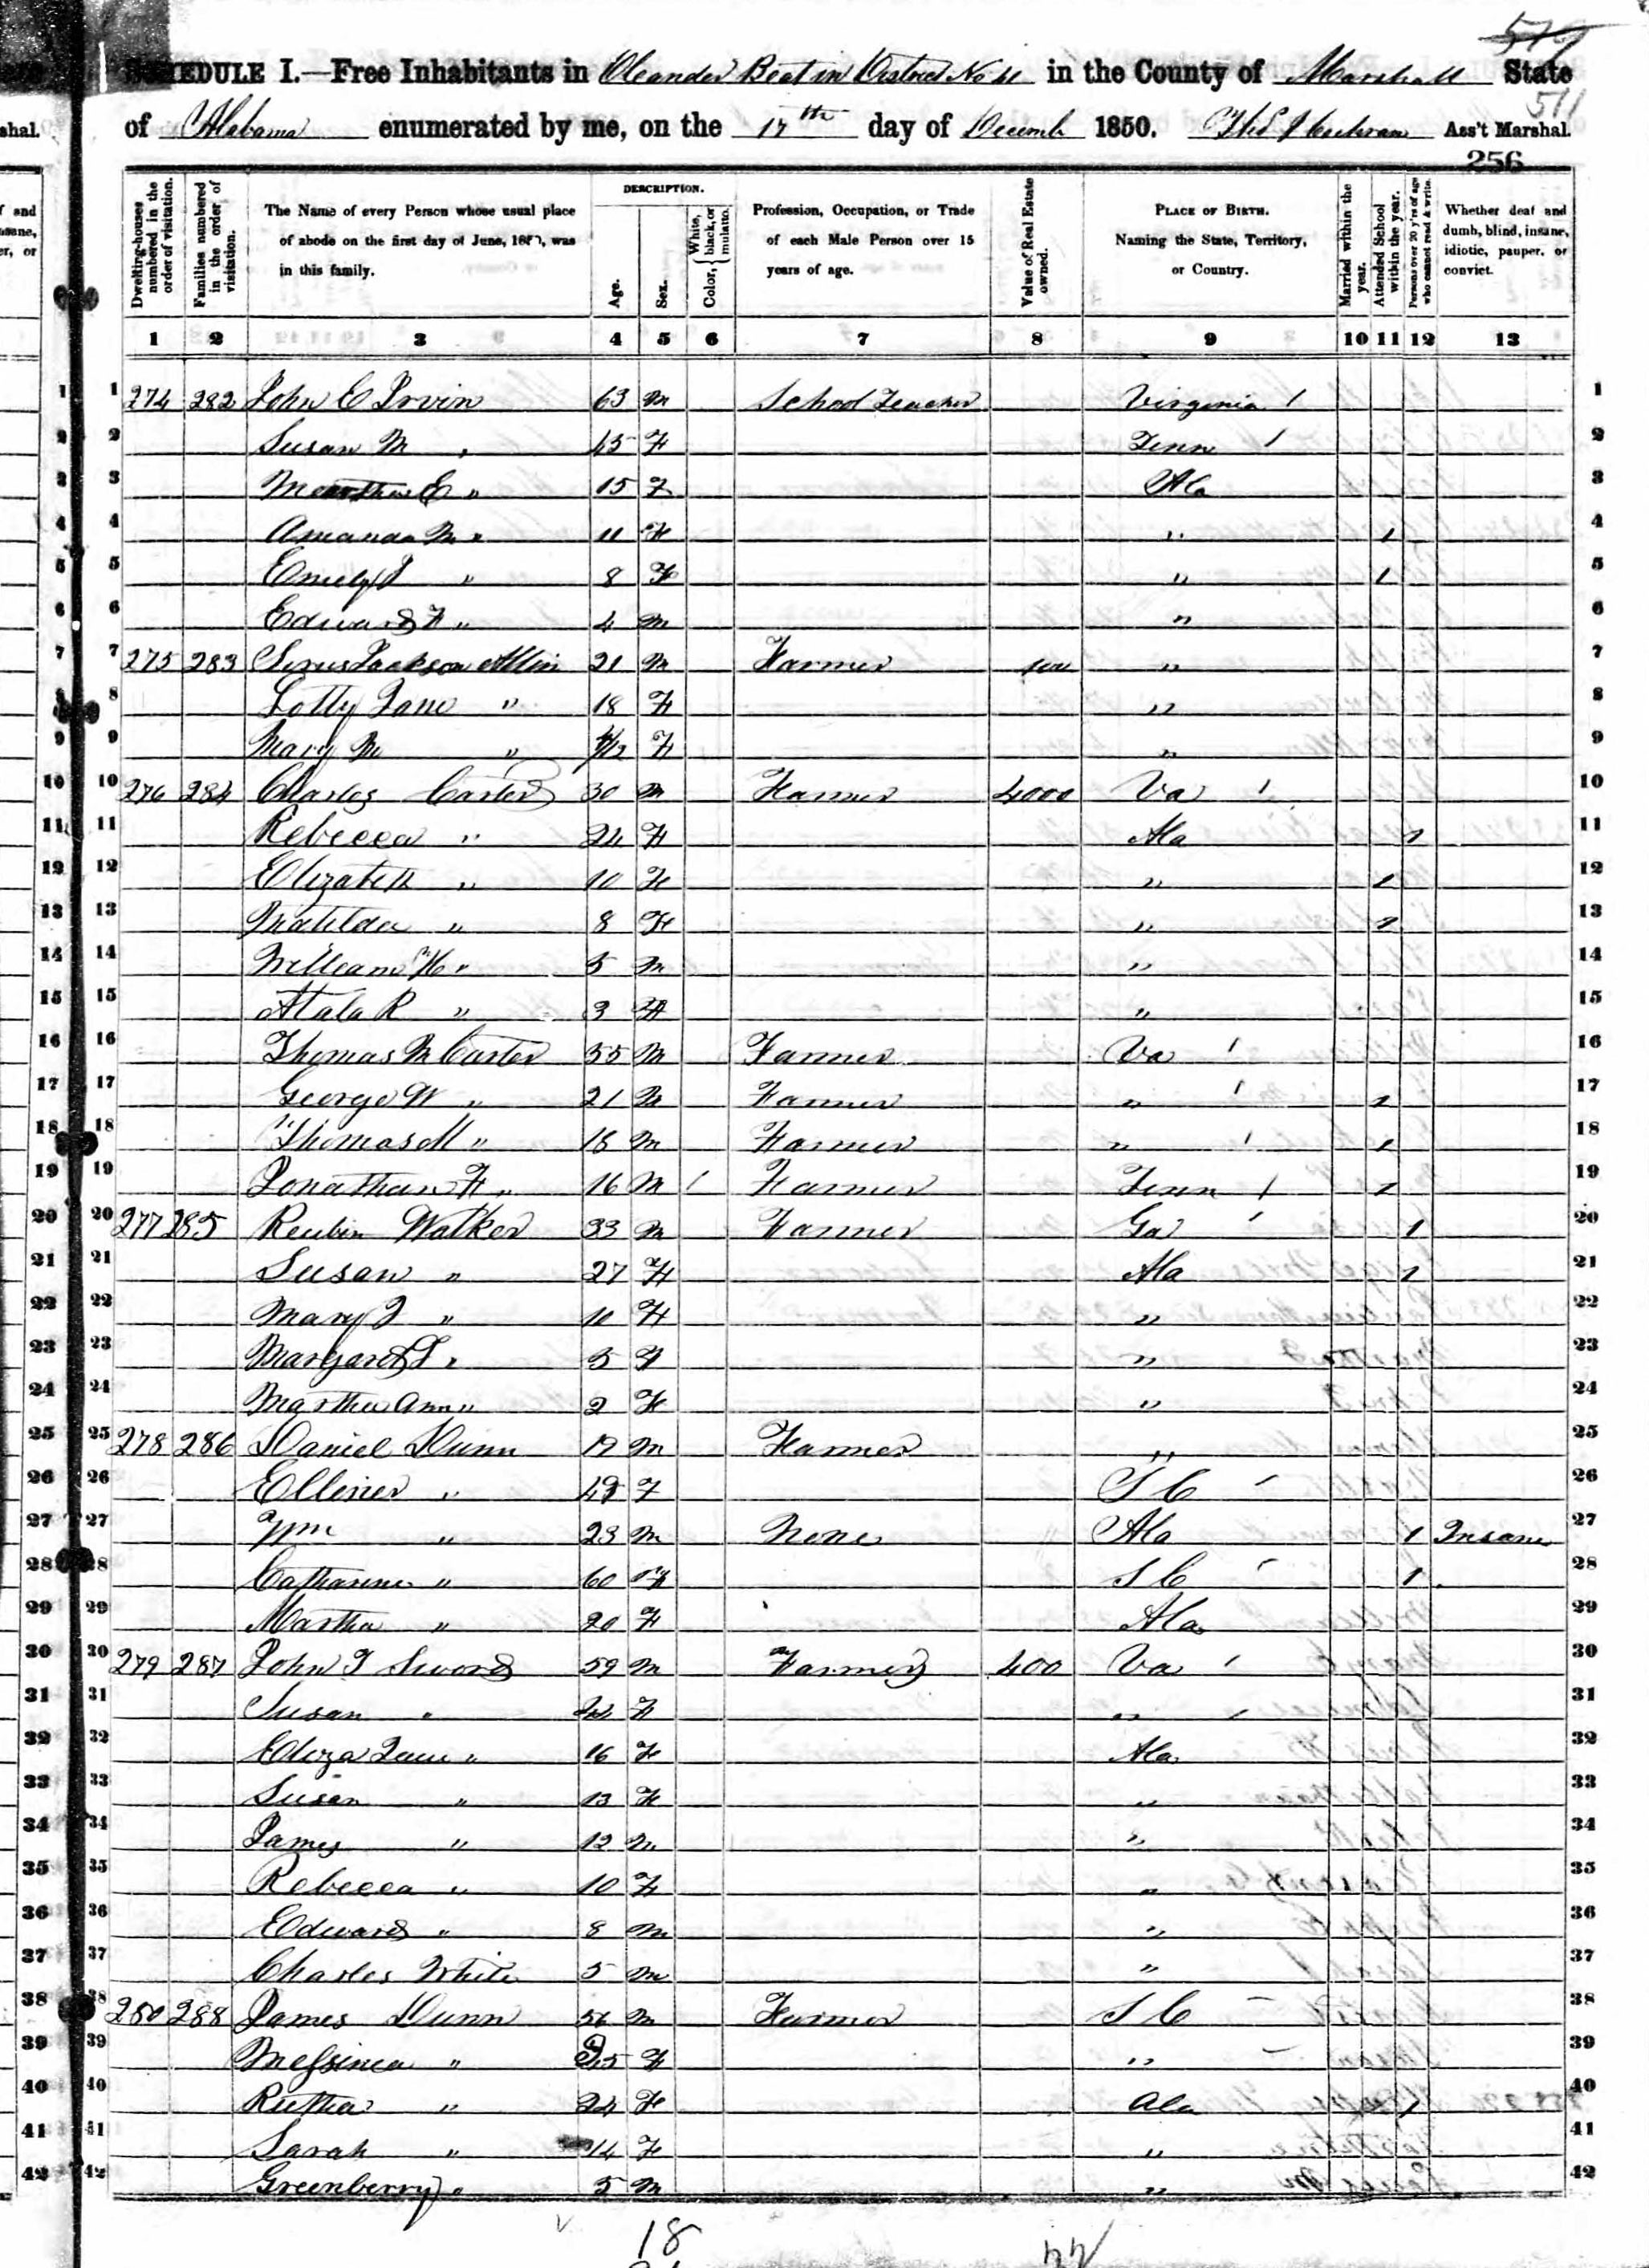 579
SCHEDULE I.—Free Inhabitants in Oleander Beat in District No 41 in the County of Marshall State
511
of Alabama enumerated by me, on the 17th day of Decemb 1850. Ass't Marshal.
256
Dwelling-houses numbered in the order of visitation.
Families numbered in the order of visitation.
The Name of every Person whose usual place of abode on the first day of June, 1850, was in this family.
DESCRIPTION.
Age.
Sex.
Color, { White, black, or mulatto.
Profession, Occupation, or Trade of each Male Person over 15 years of age.
Value of Real Estate owned.
PLACE OF BIRTH. Naming the State, Territory, or Country.
Married within the year.
Attended School within the year.
Persons over 20 y'rs of age who cannot read & write.
Whether deaf and dumb, blind, insane, idiotic, pauper, or convict.
1 2 3 4 5 6 7 8 9 10 11 12 13
1 274 282 John E Irvin 63 M School Teacher Virginia / 1
2 Susan M " 45 F Tenn / 2
3 Martha E " 15 F Ala 3
4 Amanda M " 11 F " 1 4
5 Emely J " 8 F " 1 5
6 Edward F " 4 M " 6
7 275 283 Jackson Allin 21 M Farmer 100 " 7
8 Lotty Jane " 18 F " 8
9 Mary M " /12 F " 9
10 276 284 Charles Carter 30 M Farmer 4000 Va / 10
11 Rebecca " 24 F Ala 1 11
12 Elizabeth " 10 F " 1 12
13 Matilda " 8 F " 1 13
14 William H " 5 M " 14
15 Atala R " 3 F " 15
16 Thomas M Carter 55 M Farmer Va / 16
17 George W " 21 M Farmer " / 1 17
18 Thomas M " 18 M Farmer " / 1 18
19 Jonathan F " 16 M / Farmer Tenn / 1 19
20 277 285 Reubin Walker 33 M Farmer Ga / 1 20
21 Susan " 27 F Ala 1 21
22 Mary J " 10 F " 22
23 Margaret " 5 F " 23
24 Martha Ann " 2 F " 24
25 278 286 Daniel Dunn 19 M Farmer " 25
26 Elliner " 49 F S C / 26
27 Wm " 23 M None Ala 1 Insane 27
28 Catharine " 60 F S C / 1 28
29 Martha " 20 F Ala 29
30 279 287 John T Swords 59 M Farmer 400 Va / 30
31 Susan " 42 F " / 31
32 Eliza Jane " 16 F Ala 32
33 Susan " 13 F " 33
34 James " 12 M " 34
35 Rebecca " 10 F " 35
36 Edward " 8 M " 36
37 Charles White 5 M " 37
38 280 288 James Dunn 56 M Farmer S C 38
39 Messinea " 55 F " 39
40 Rutha " 24 F Ala 1 40
41 Sarah " 14 F " 41
42 Greenberry " 5 M " 42
18